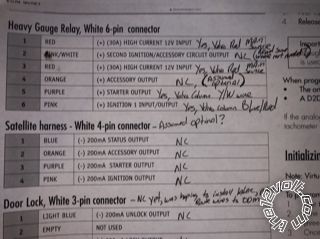 4 Release
Heavy Gauge Relay, White 6-pin connector
1 RED (+) (30A) HIGH CURRENT 12V INPUT Yes, Volvo Red Main
2 PINK/WHITE (+) SECOND IGNITION/ACCESSORY CIRCUIT OUTPUT NC
3 RED (+) (30A) HIGH CURRENT 12V INPUT Yes, Volvo Red Main
4 ORANGE (+) ACCESSORY OUTPUT NC
5 PURPLE (+) STARTER OUTPUT Yes, Volvo Column Y/W wire
6 PINK (+) IGNITION 1 INPUT/OUTPUT Yes, Volvo Column Blue/Red
When progr
The an
A D2D
If the analo
tachometer
Satellite harness - White 4-pin connector - Assumed optional?
1 BLUE (-) 200mA STATUS OUTPUT NC
2 ORANGE (-) 200mA ACCESSORY OUTPUT NC
3 PURPLE (-) 200mA STARTER OUTPUT NC
4 PINK (-) 200mA IGNITION OUTPUT NC
Initializin
Note: Virtu
Door Lock, White 3-pin connector - NC yet, was hoping to install
1 LIGHT BLUE (-) 200mA UNLOCK OUTPUT NC
2 EMPTY NOT USED
the12volt.com